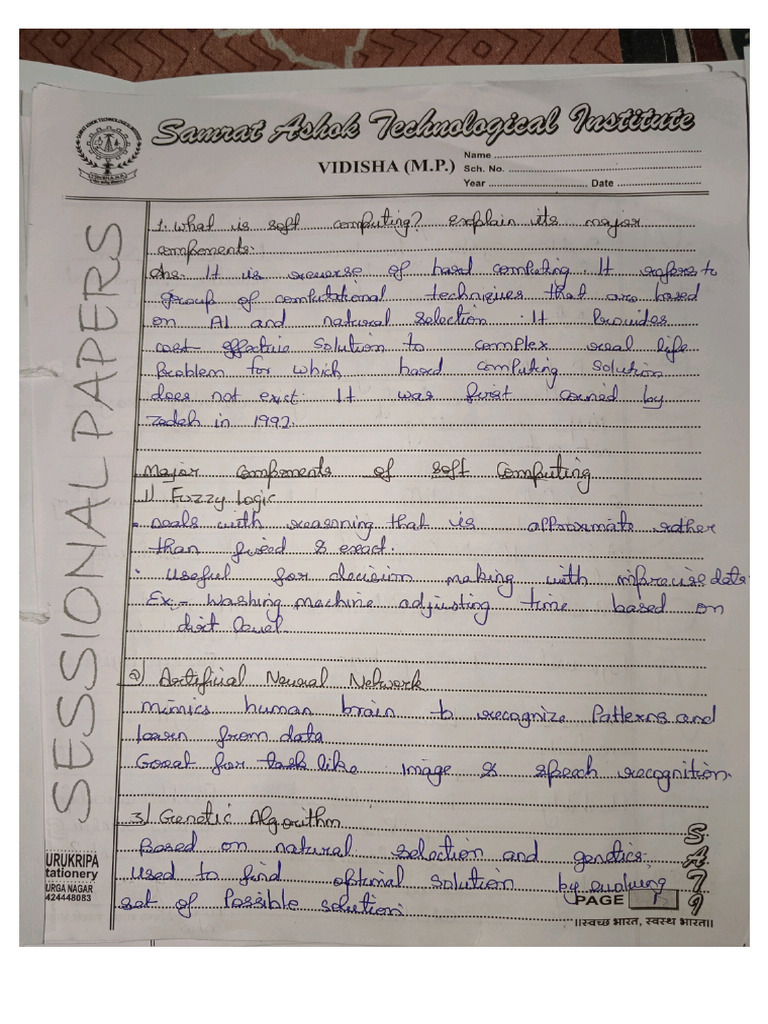 Samrat Ashok Technological Institute
VIDISHA (M.P.)
Name
Sch. No.
Year Date
SESSIONAL PAPERS
1. What is soft computing? explain its major
components.
Ans. It is reverse of hard computing. It refers to
group of computational techniques that are based
on AI and natural selection. It Provides
cost effective solution to complex real life
Problem for which hard computing solution
does not exist. It was first coined by
Zadeh in 1992.
Major components of soft computing
1) Fuzzy Logic
• Deals with reasoning that is approximate rather
than fixed & exact.
• Useful for decision making with imprecise data
Ex:- Washing machine adjusting time based on
dirt level
2) Artificial Neural Network
Mimics human brain to recognize Patterns and
learn from data
Great for task like image & speech recognition.
3) Genetic Algorithm
Based on natural selection and genetics.
Used to find optimal solution by evolving
set of Possible solution.
URUKRIPA
tationery
URGA NAGAR
424448083
SATI
PAGE 1
॥स्वच्छ भारत, स्वस्थ भारत॥